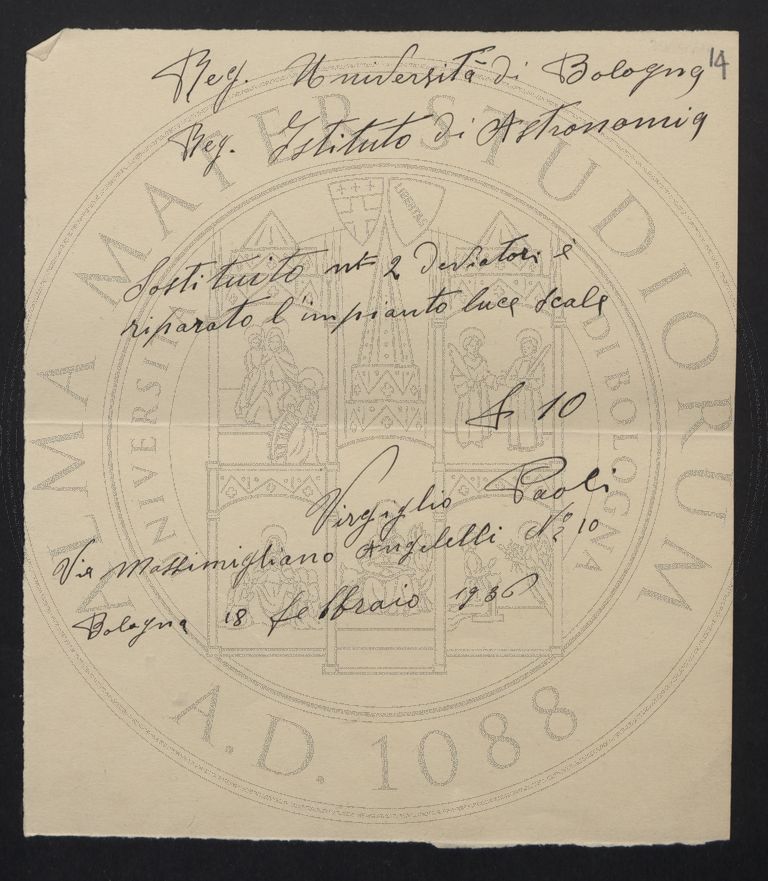 14
Reg. Università di Bologna
Reg. Istituto di Astronomia
Sostituito n° 2 deviatori e
riparato l'impianto luce scale
£ 10
Virgiglio Paoli
Via Massimigliano Angelelli N° 10
Bologna 18 febbraio 1936
ALMA MATER STUDIORUM
UNIVERSITÀ DI BOLOGNA
LIBERTAS
A.D. 1088